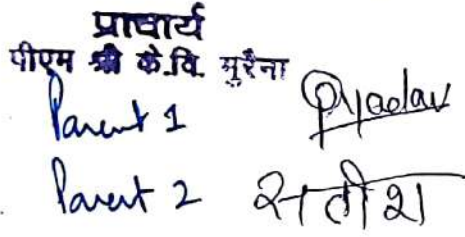 प्राचार्य
पीएम श्री के.वि. मुरैना
Parent 1 PYadav
Parent 2 सतीश